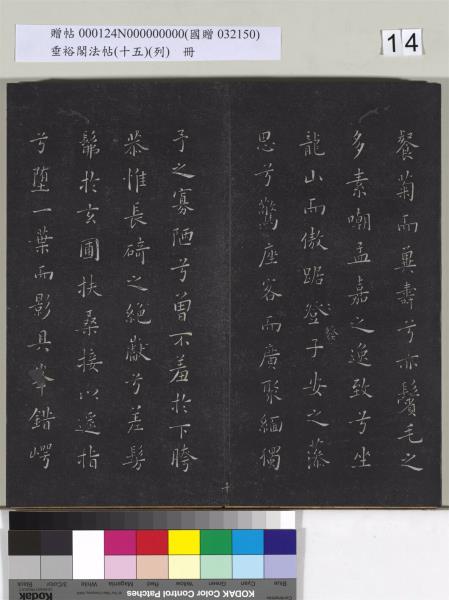 贈帖 000124N000000000(國贈 032150)
垂裕閣法帖(十五)(列) 冊
14
餐菊而冀壽兮亦鬢毛之
多素嘲孟嘉之逸致兮坐
龍山而傲踞登子安之藻
發
思兮驚座客而廣聚緬獨
予之寡陋兮曾不羞於下
恭惟長碕之絕巘兮差髣
髴於玄圃扶桑接以遥指
兮墮一葉而影具峯錯崿
十
KODAK Color Control Patches
Blue
Cyan
Green
Yellow
Red
Magenta
White
3/Color
Black
Kodak